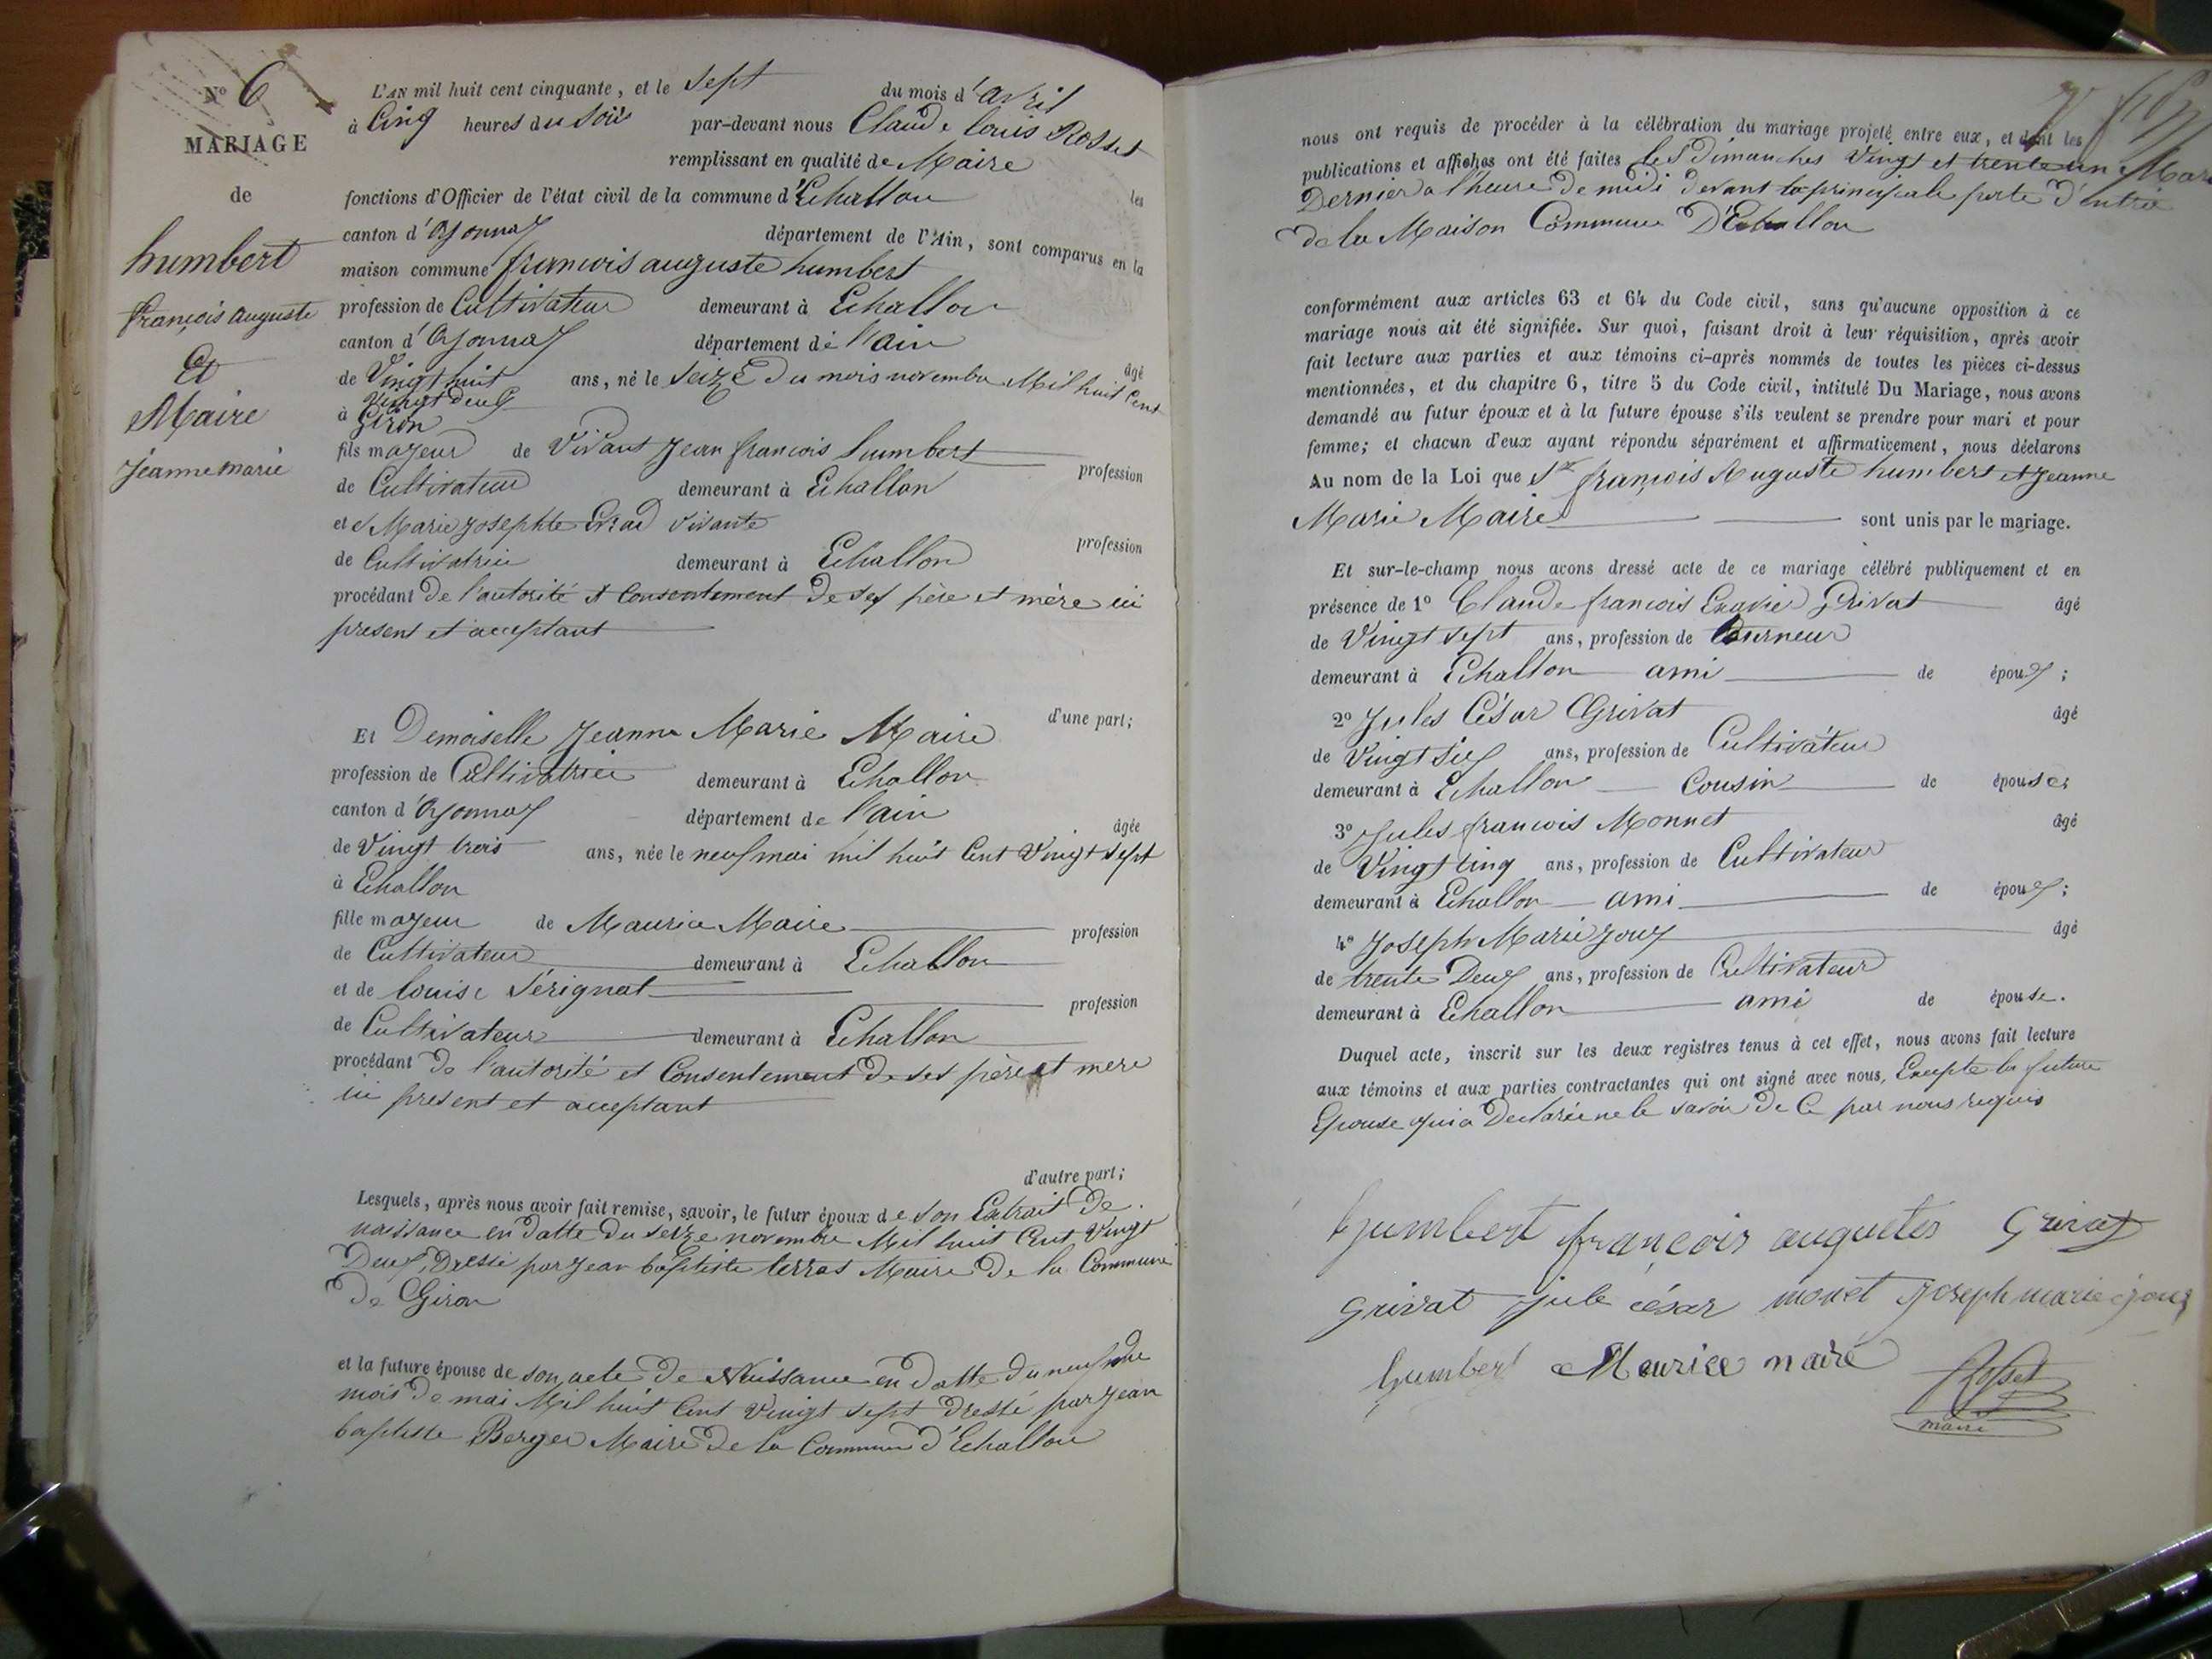 N° 6
MARIAGE
de
humbert
françois auguste
Et
Maire
Jeanne marie
L'AN mil huit cent cinquante, et le sept du mois d'avril
à Cinq heures du soir par-devant nous Claude louis Rosset
remplissant en qualité de Maire les
fonctions d'Officier de l'état civil de la commune d'Echallon
canton d'Oyonnax département de l'Ain, sont comparus en la
maison commune françois auguste humbert
profession de Cultivateur demeurant à Echallon
canton d'Oyonnax département de l'ain âgé
de Vingt huit ans, né le seize du mois novembre Mil huit Cent
Vingt deux
à Giron
fils majeur de Vivant Jean françois humbert profession
de Cultivateur demeurant à Echallon
et de Marie Josephte vivante profession
de Cultivatrice demeurant à Echallon
procédant De l'autorité et Consentement De ses père et mère ici
present et acceptant
d'une part;
Et Demoiselle Jeanne Marie Maire
profession de Cultivatrice demeurant à Echallon
canton d'Oyonnax département de l'ain âgée
de Vingt trois ans, née le neuf mai mil huit Cent Vingt sept
à Echallon
fille majeur de Maurice Maire profession
de Cultivateur demeurant à Echallon
et de louise Sérignat profession
de Cultivateur demeurant à Echallon
procédant De l'autorité et Consentement De ses père et mere
ici present et acceptant
d'autre part;
Lesquels, après nous avoir fait remise, savoir, le futur époux de son Extrait De
naissance en datte du seize novembre Mil huit Cent Vingt
Deux, Dressé par Jean baptiste terras Maire De la Commune
De Giron
et la future épouse de son acte De Naissance en Datte du neuf du
mois De mai Mil huit Cent Vingt sept Dressé par Jean
baptiste Berger Maire De la Commune d'Echallon
nous ont requis de procéder à la célébration du mariage projeté entre eux, et dont les
publications et affiches ont été faites les Dimanches Vingt et trente un Mars
Dernier a l'heure De midi Devant la principale porte D'entrée
de la Maison Commune D'Echallon
conformément aux articles 63 et 64 du Code civil, sans qu'aucune opposition à ce
mariage nous ait été signifiée. Sur quoi, faisant droit à leur réquisition, après avoir
fait lecture aux parties et aux témoins ci-après nommés de toutes les pièces ci-dessus
mentionnées, et du chapitre 6, titre 5 du Code civil, intitulé Du Mariage, nous avons
demandé au futur époux et à la future épouse s'ils veulent se prendre pour mari et pour
femme; et chacun d'eux ayant répondu séparément et affirmativement, nous déclarons
Au nom de la Loi que Sr françois Auguste humbert et Jeanne
Marie Maire sont unis par le mariage.
Et sur-le-champ nous avons dressé acte de ce mariage célébré publiquement et en
présence de 1° Claude françois Exavier Grivat âgé
de Vingt sept ans, profession de tourneur
demeurant à Echallon ami de époux;
2° Jules César Grivat âgé
de Vingt Six ans, profession de Cultivateur
demeurant à Echallon Cousin de épouse;
3° Jules françois Monnet âgé
de Vingt Cinq ans, profession de Cultivateur
demeurant à Echallon ami de époux;
4° Joseph Marie Joux âgé
de trente Deux ans, profession de Cultivateur
demeurant à Echallon ami de épouse.
Duquel acte, inscrit sur les deux registres tenus à cet effet, nous avons fait lecture
aux témoins et aux parties contractantes qui ont signé avec nous, Excepte la future
Epouse qui a Declarée ne le savoir De Ce par nous requis
humbert françois augustes Grivat
Grivat jule césar monet Joseph marie joux
humbert Maurice maire Rosset
maire